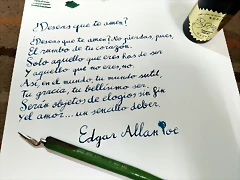 ¿Deseas que te amen?
¿Deseas que te amen? No pierdas, pues,
El rumbo de tu corazón.
Solo aquello que eres has de ser
Y aquello que no eres, no.
Así, en el mundo, tu mundo sutil,
Tu gracia, tu bellísimo ser,
Serán objetos de elogios sin fin
Y el amor... un sencillo deber.
Edgar Allan Poe